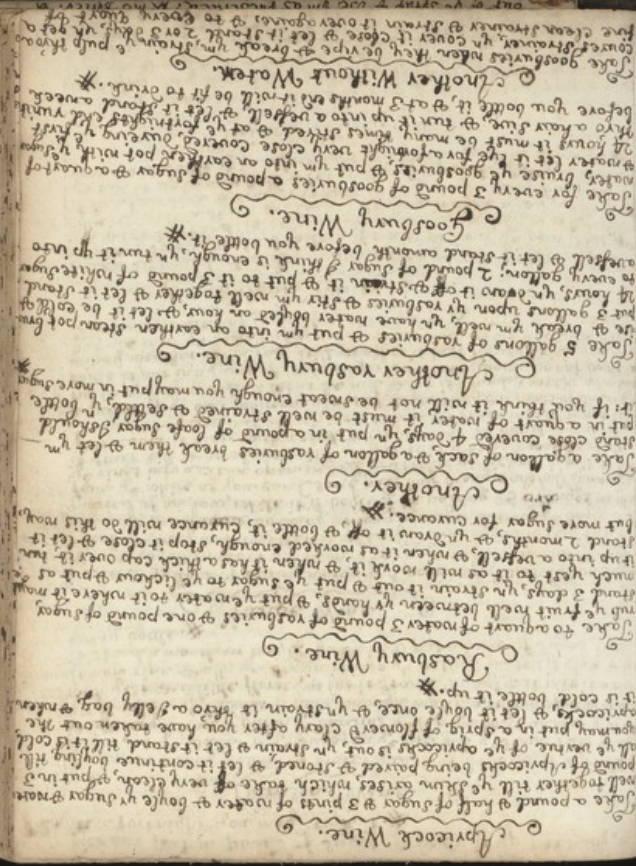 Apricock Wine.
Take a pound & half of sugar & 3 pints of water & boyle yr sugar & water
well together till ye skim arises, which take off very clean, & put in 3
pound of Apricocks being paired, stoned, & let it continue boyling till
all ye vertue of ye apricocks is out, yn strain & let it stand till it is cold
you may put in a sprig of flowerd clary after you have taken out the
apricocks, & let it boyle once, & yn strain it thro a Jelly bag, & when
it is cold bottle it up.
Rasbury Wine.
Take to a quart of water 3 pound of rasburies & one pound of sugar,
rub ye fruit well between yr hands, & put ye water to it where it must
stand 3 days, yn strain it out & put ye sugar to ye lickour & put as
much yest to it as will work it, & when it has a thick cap over it, tun
it up into a vessell, & when it as worked enough, stop it close & let it
stand 2 months, & yn drawn it off & bottle it, currance will do this way
but more sugar for currance.
Another.
Take a gallon of sack & a gallon of rasburies break them & let ym
stand close covered 4 days, yn put in a pound of loafe sugar I should
put in a quart of water it must be well strained & settled, yn bottle
it: if you think it will not be sweet enough you may put in more sugar
Another rasbury Wine.
Take 5 gallons of rasburies & put ym into an earthen stean pot
& break ym well, yn have water boyled an hour, & let it be cold &
put 3 gallons upon yr rasburies & stir ym well together & let it stand
24 hours, yn draw it off & strain it & put to it 3 pound of white sugar
to every gallon: 2 pound of sugar I think is enough, yn tun it up into
a vessell & let it stand a month before you bottle it.
Goosbury Wine.
Take for every 3 pound of goosburies a pound of sugar & a quart of
water, bruise ye goosburies & put ym into an earthen pot with ye sugar
& water let it lye for a fortnight very close covered, dureing ye first
24 hours it must be many times stirred, & at ye fortnights end, runing
thro a hair sive, & tun it up into a vessell, & let it stand a week
before you bottle it, & at 3 months end it will be fit to drink.
Another Without Water.
Take goosburies when they be ripe & break ym, strain ye pulp thro
strainer, yn cover it close & let it stand 2 or 3 days, yn get a
fine clean strainer & strain it over again, & to every quart of